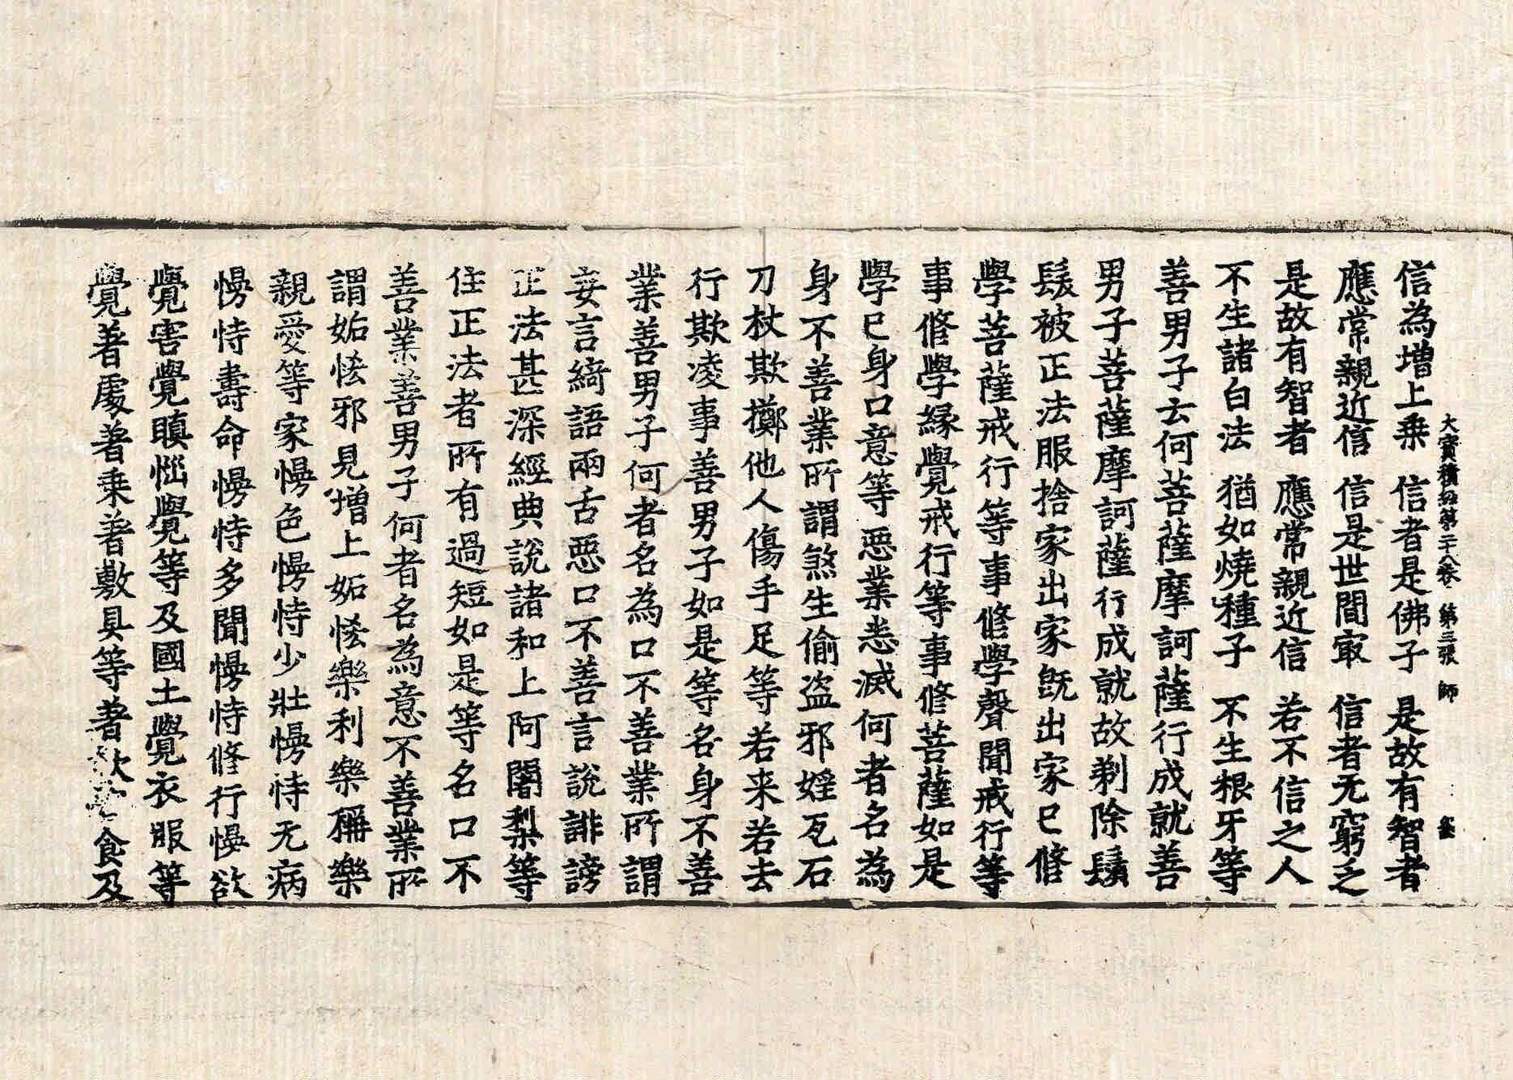 大寶積経第二十八卷 第三張 師
信為增上乘 信者是佛子 是故有智者
應常親近信 信是世間㝡 信者无窮乏
是故有智者 應常親近信 若不信之人
不生諸白法 猶如燒種子 不生根牙等
善男子云何菩薩摩訶薩行成就善
男子菩薩摩訶薩行成就故剃除鬚
髮被正法服捨家出家旣出家已修
學菩薩戒行等事修學聲聞戒行等
事修學緣覺戒行等事修菩薩如是
學已身口意等惡業悉滅何者名為
身不善業所謂煞生偷盜邪婬瓦石
刀杖欺擲他人傷手足等若来若去
行欺凌事善男子如是等名身不善
業善男子何者名為口不善業所謂
妄言綺語兩舌惡口不善言說誹謗
正法甚深經典說諸和上阿闍梨等
住正法者所有過短如是等名口不
善業善男子何者名為意不善業所
謂妬恡邪見增上妬恡樂利樂稱樂
親愛等家慢色慢恃少壯慢恃无病
慢恃壽命慢恃多聞慢恃修行慢欲
覺害覺瞋惱覺等及國土覺衣服等
覺著處著乘著敷具等著 食及